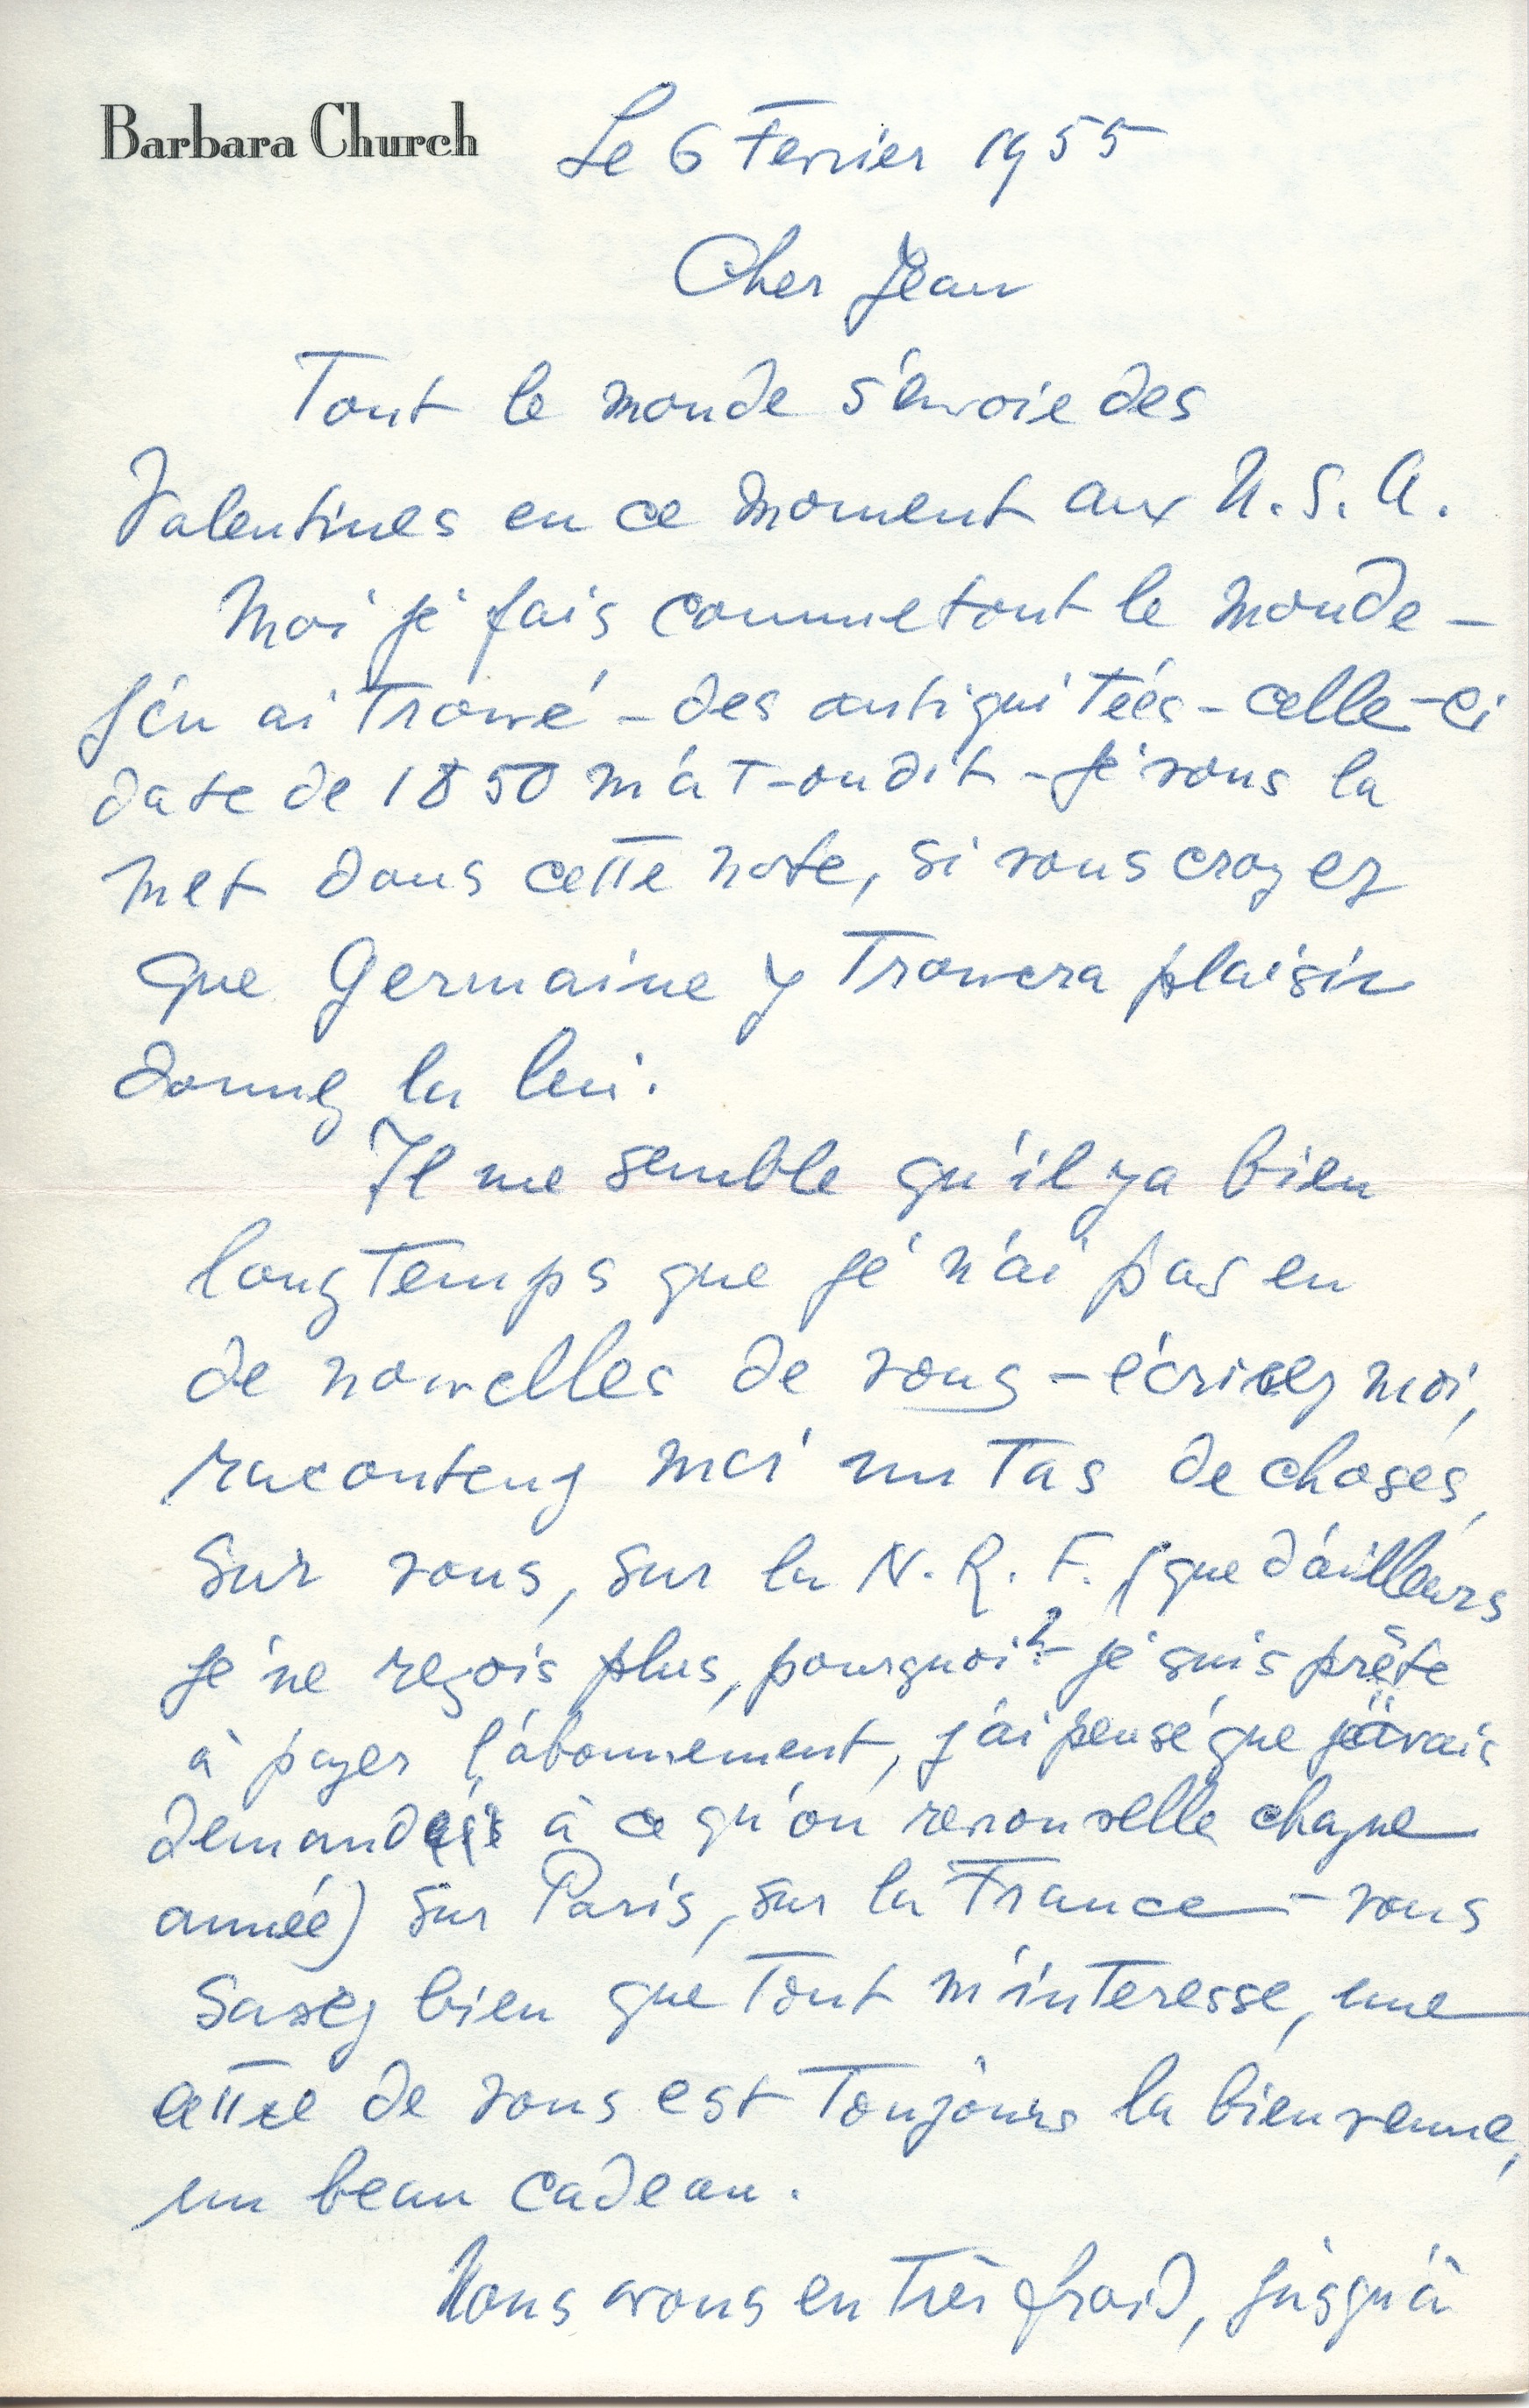 Barbara Church
Le 6 Fevrier 1955
Cher Jean
Tout le monde s'envoie des
Valentines en ce moment aux U.S.A.
Moi je fais comme tout le monde -
J'en ai trouvé - des antiquitées - celle-ci
date de 1850 m'a t-on dit - Je vous la
met dans cette note, si vous croyez
que Germaine y trouvera plaisir
donnez la lui.
Il me semble qu'il y a bien
longtemps que je n'ai pas eu
de nouvelles de vous - écrivez moi,
racontez moi un tas de choses,
sur vous, sur la N.R.F. (que d'ailleurs
je ne reçois plus, pourquoi? - je suis prête
à payer l'abonnement, j'ai pensé que j'avais
demandé à ce qu'on renouvelle chaque
année) sur Paris, sur la France - vous
savez bien que tout m'interesse, une
lettre de vous est toujours la bienvenue,
un beau cadeau.
Nous avons eu très froid, jusqu'à